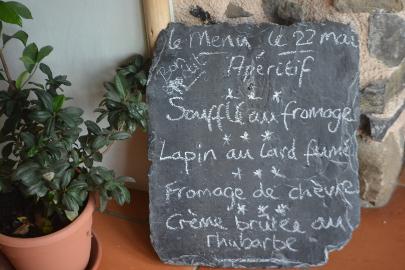 le Menu le 22 mai
Apéritif
Soufflé au fromage
Lapin au lard fumé
Fromage de chèvre
Crème brûlée au
rhubarbe